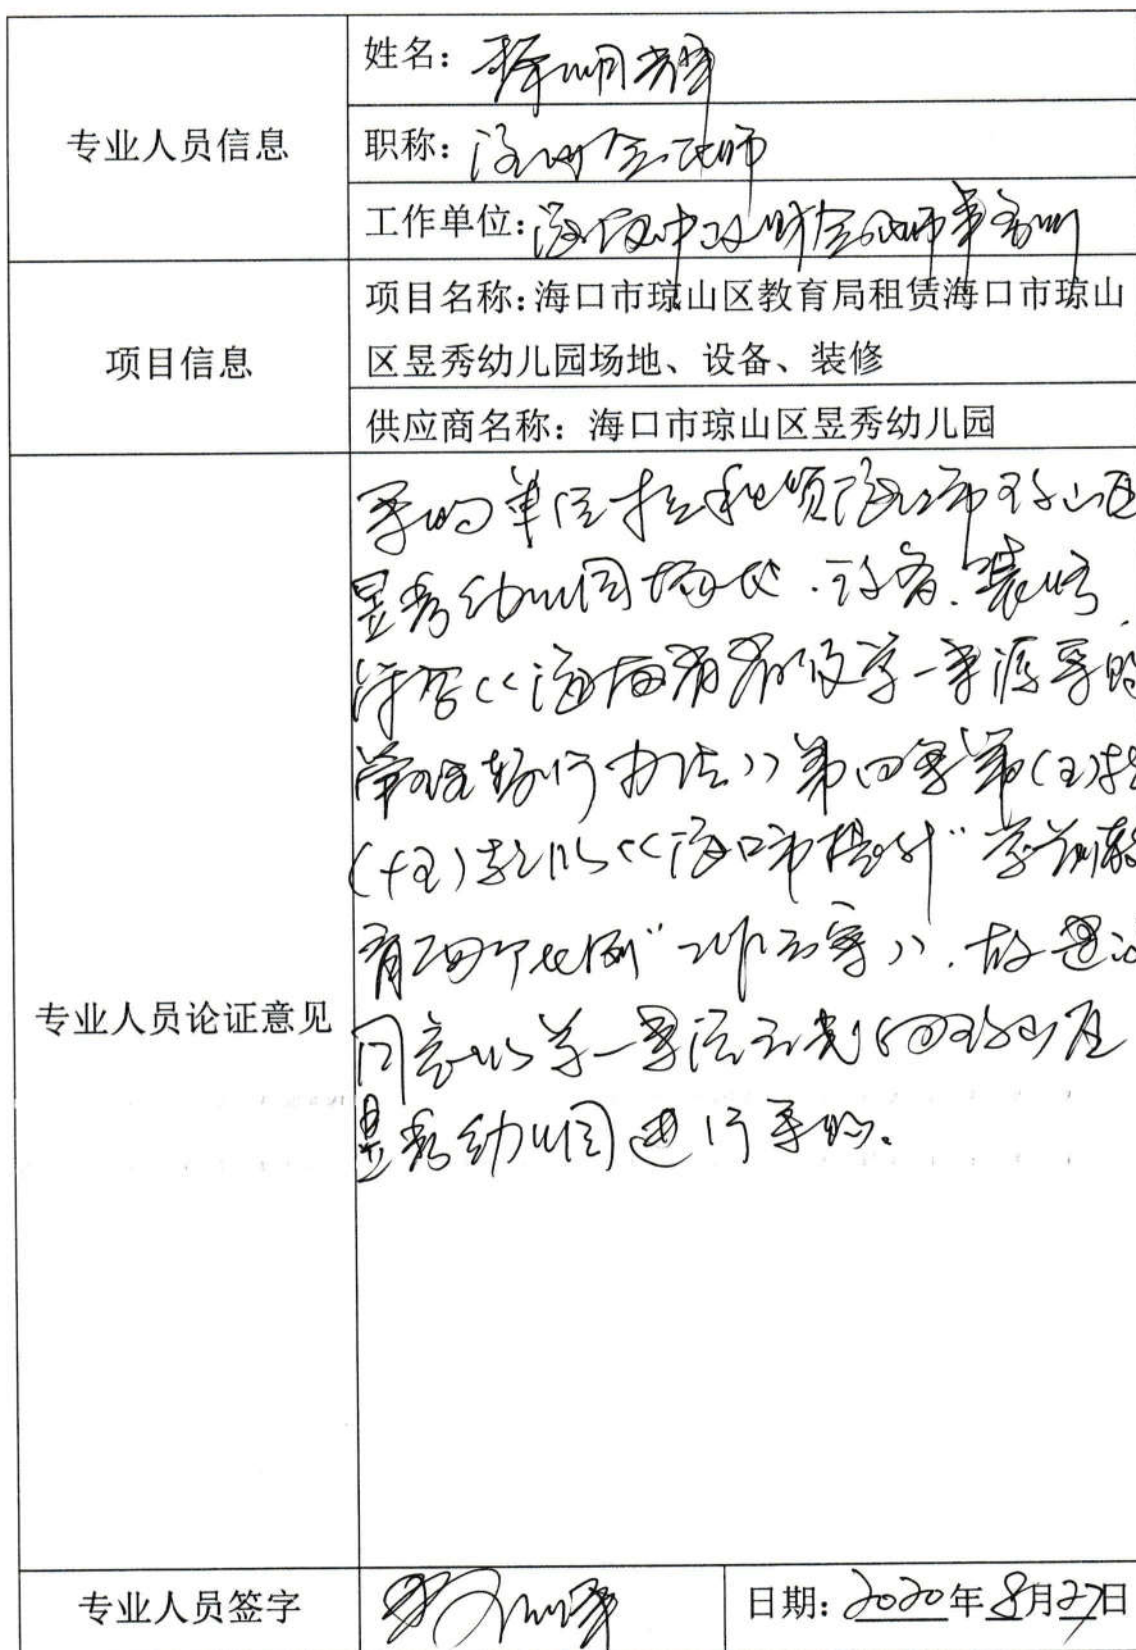 专业人员信息
姓名：
职称：注册会计师
工作单位：海南中 财会计师事务所
项目信息
项目名称：海口市琼山区教育局租赁海口市琼山
区昱秀幼儿园场地、设备、装修
供应商名称：海口市琼山区昱秀幼儿园
专业人员论证意见
采购单位拟租赁海口市琼山区
昱秀幼儿园场地、设备、装修，
符合《海南省省级单一来源采购
管理暂行办法》第四条第(五)款
(十五)款以《海口市提升"学前教
育两个比例"工作方案》，故建议
同意以单一来源方式向琼山区
昱秀幼儿园进行采购。
专业人员签字
日期：2020年8月27日